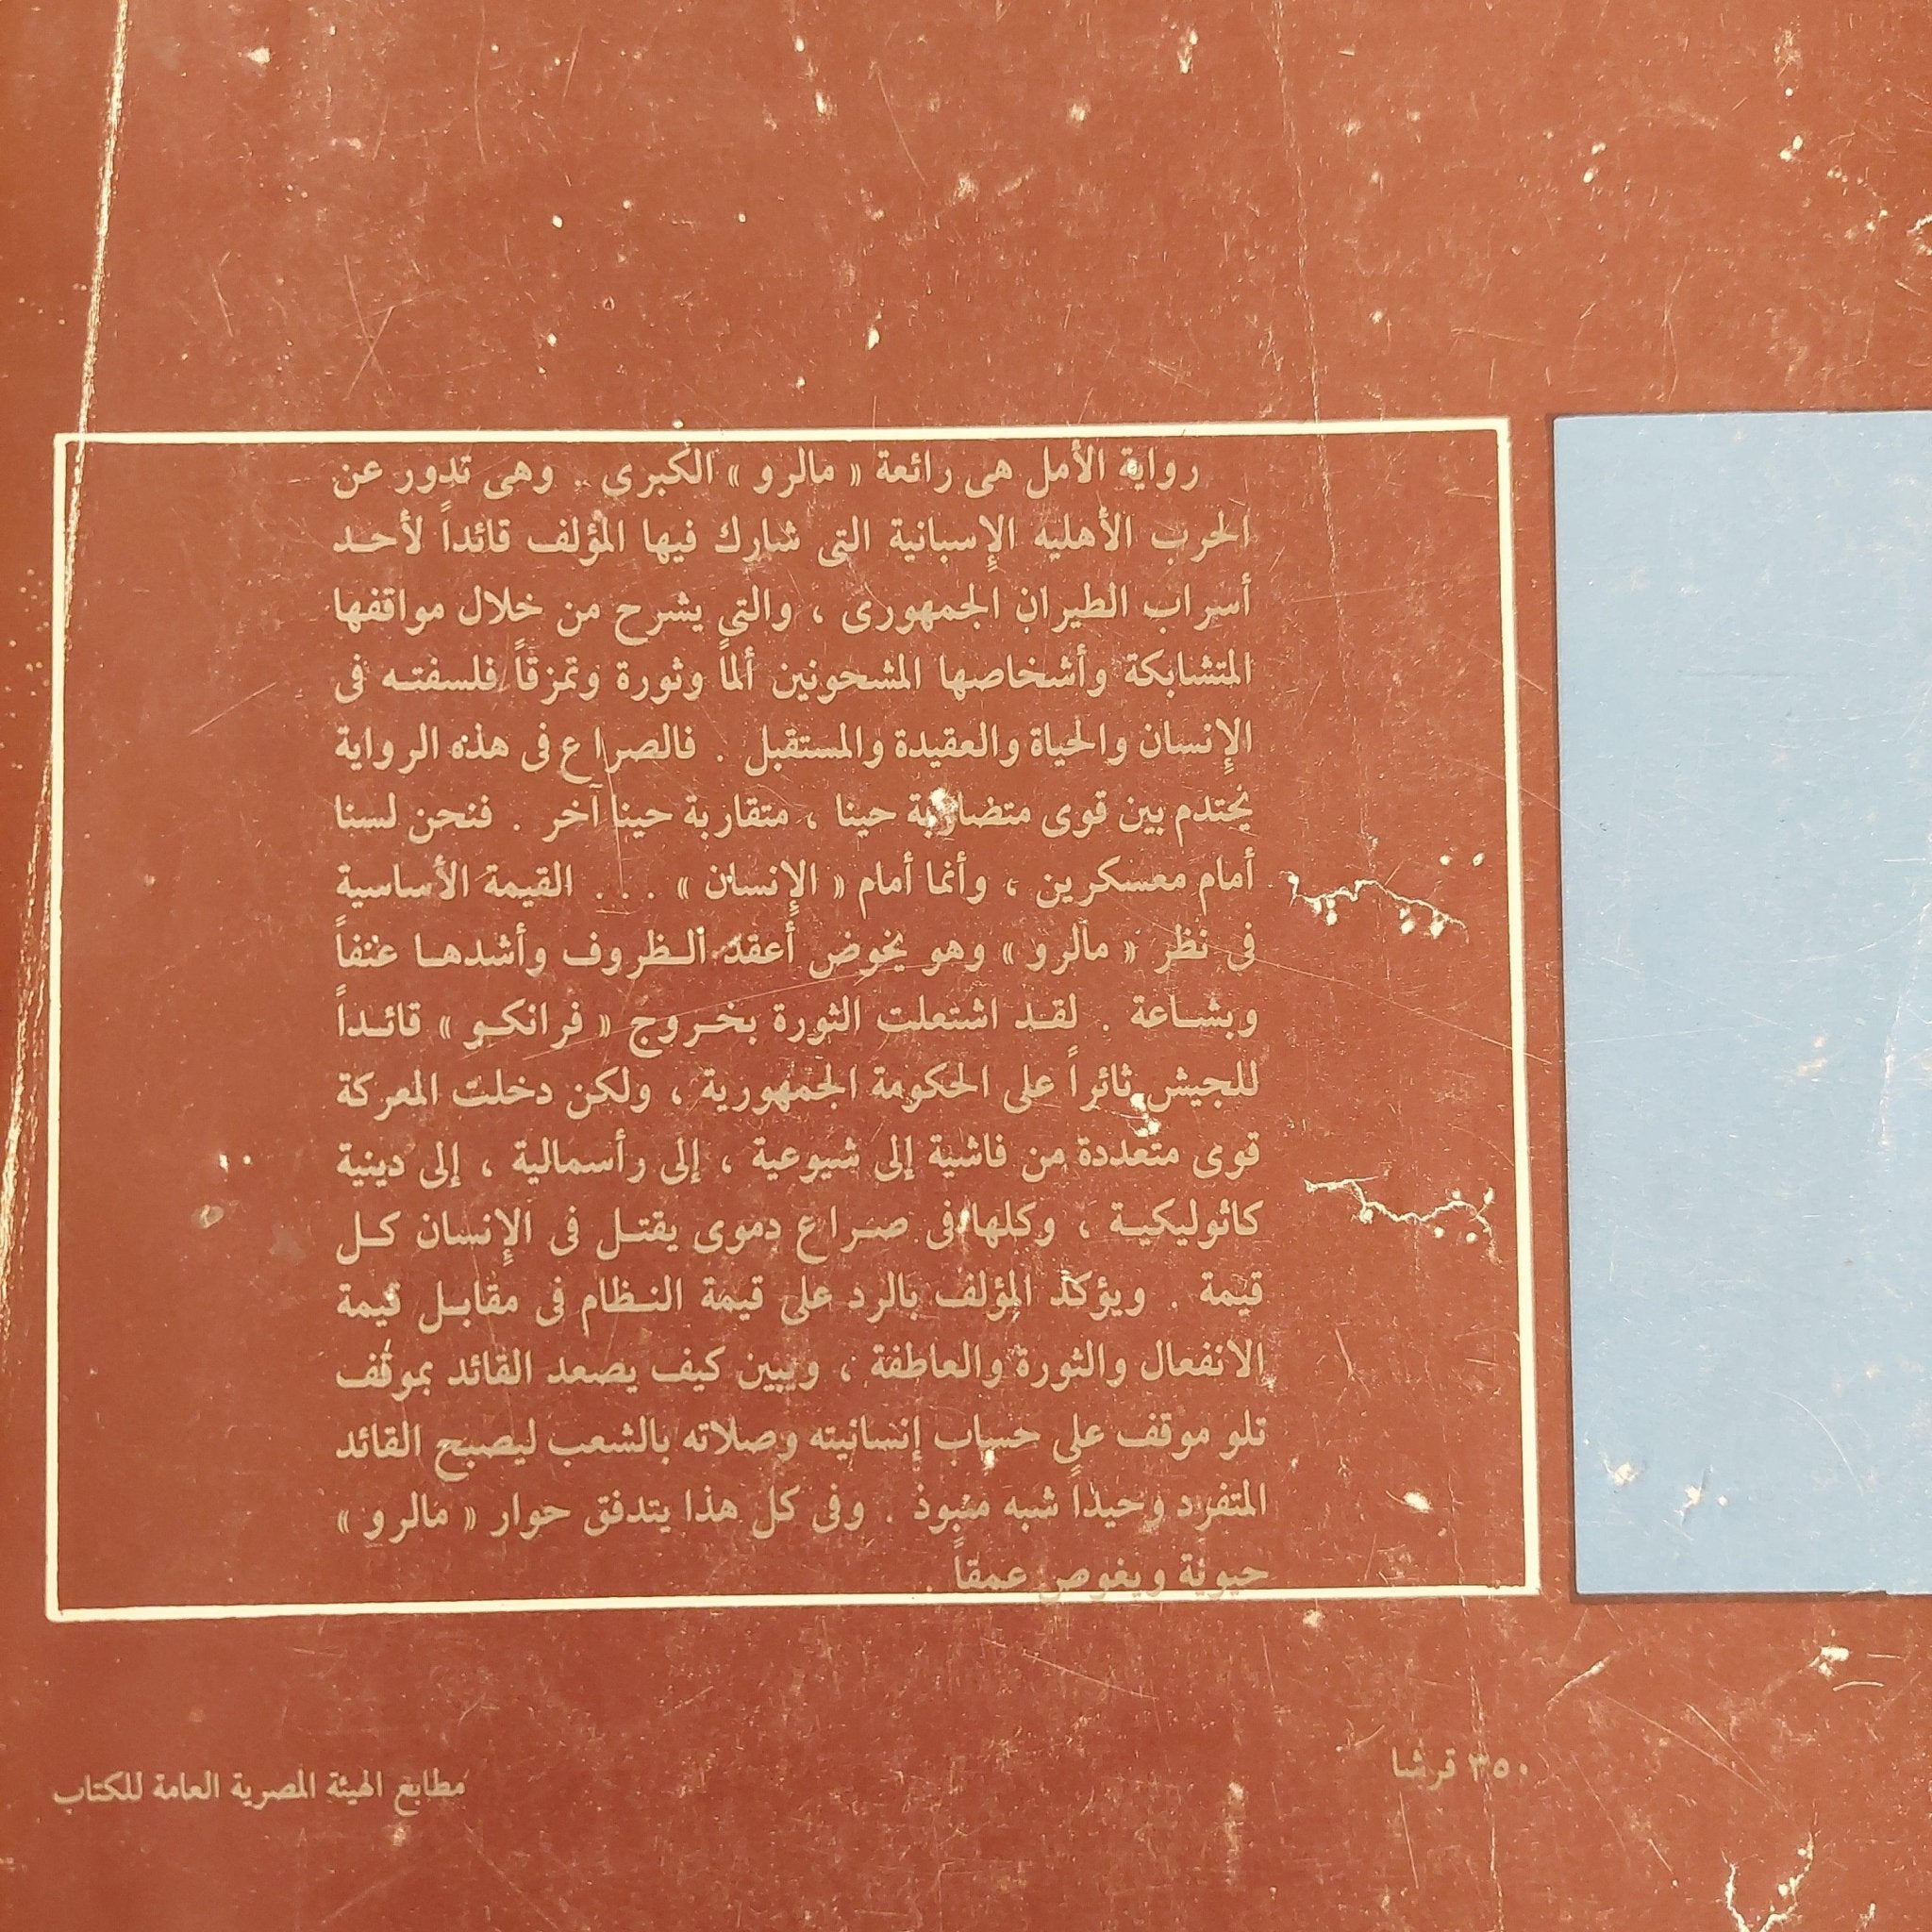 رواية الأمل هى رائعة « مالرو » الكبرى . وهى تدور عن
الحرب الأهليه الإسبانية التى شارك فيها المؤلف قائداً لأحد
أسراب الطيران الجمهورى ، والتى يشرح من خلال مواقفها
المتشابكة وأشخاصها المشحونين ألماً وثورة وتمزقاً فلسفته فى
الإنسان والحياة والعقيدة والمستقبل . فالصراع فى هذه الرواية
يحتدم بين قوى متضاربة حينا ، متقاربة حينا آخر . فنحن لسنا
أمام معسكرين ، وأنما أمام « الإنسان » . . . القيمة الأساسية
فى نظر « مالرو » وهو يخوض أعقد الظروف وأشدها عنفاً
وبشاعة . لقد اشتعلت الثورة بخروج « فرانكو » قائداً
للجيش ثائراً على الحكومة الجمهورية ، ولكن دخلت المعركة
قوى متعددة من فاشية إلى شيوعية ، إلى رأسمالية ، إلى دينية
كاثوليكية ، وكلها فى صراع دموى يقتل فى الإنسان كل
قيمة . ويؤكد المؤلف بالرد على قيمة النظام فى مقابل قيمة
الانفعال والثورة والعاطفة ، ويبين كيف يصعد القائد بموقف
تلو موقف على حساب إنسانيته وصلاته بالشعب ليصبح القائد
المتفرد وحيداً شبه منبوذ . وفى كل هذا يتدفق حوار « مالرو »
حيوية ويغوص عمقاً .
٣٥٠ قرشا
مطابع الهيئة المصرية العامة للكتاب